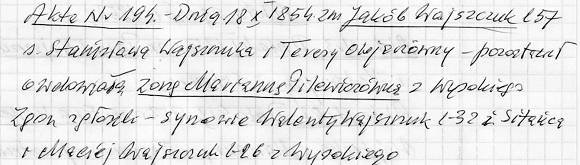 Akta Nr 194. - Dnia 18 X 1854 zm Jakób Wajszczuk l 57
s. Stanisława Wajszczuka i Teresy Olejiciówny - pozostawił
owdowiałą żonę Mariannę Pilewiczówną z Wysokiego
Zgon zgłosili - synowie Walenty Wajszczuk l-32 z Sitańca
i Maciej Wajszczuk l-26 z Wysokiego